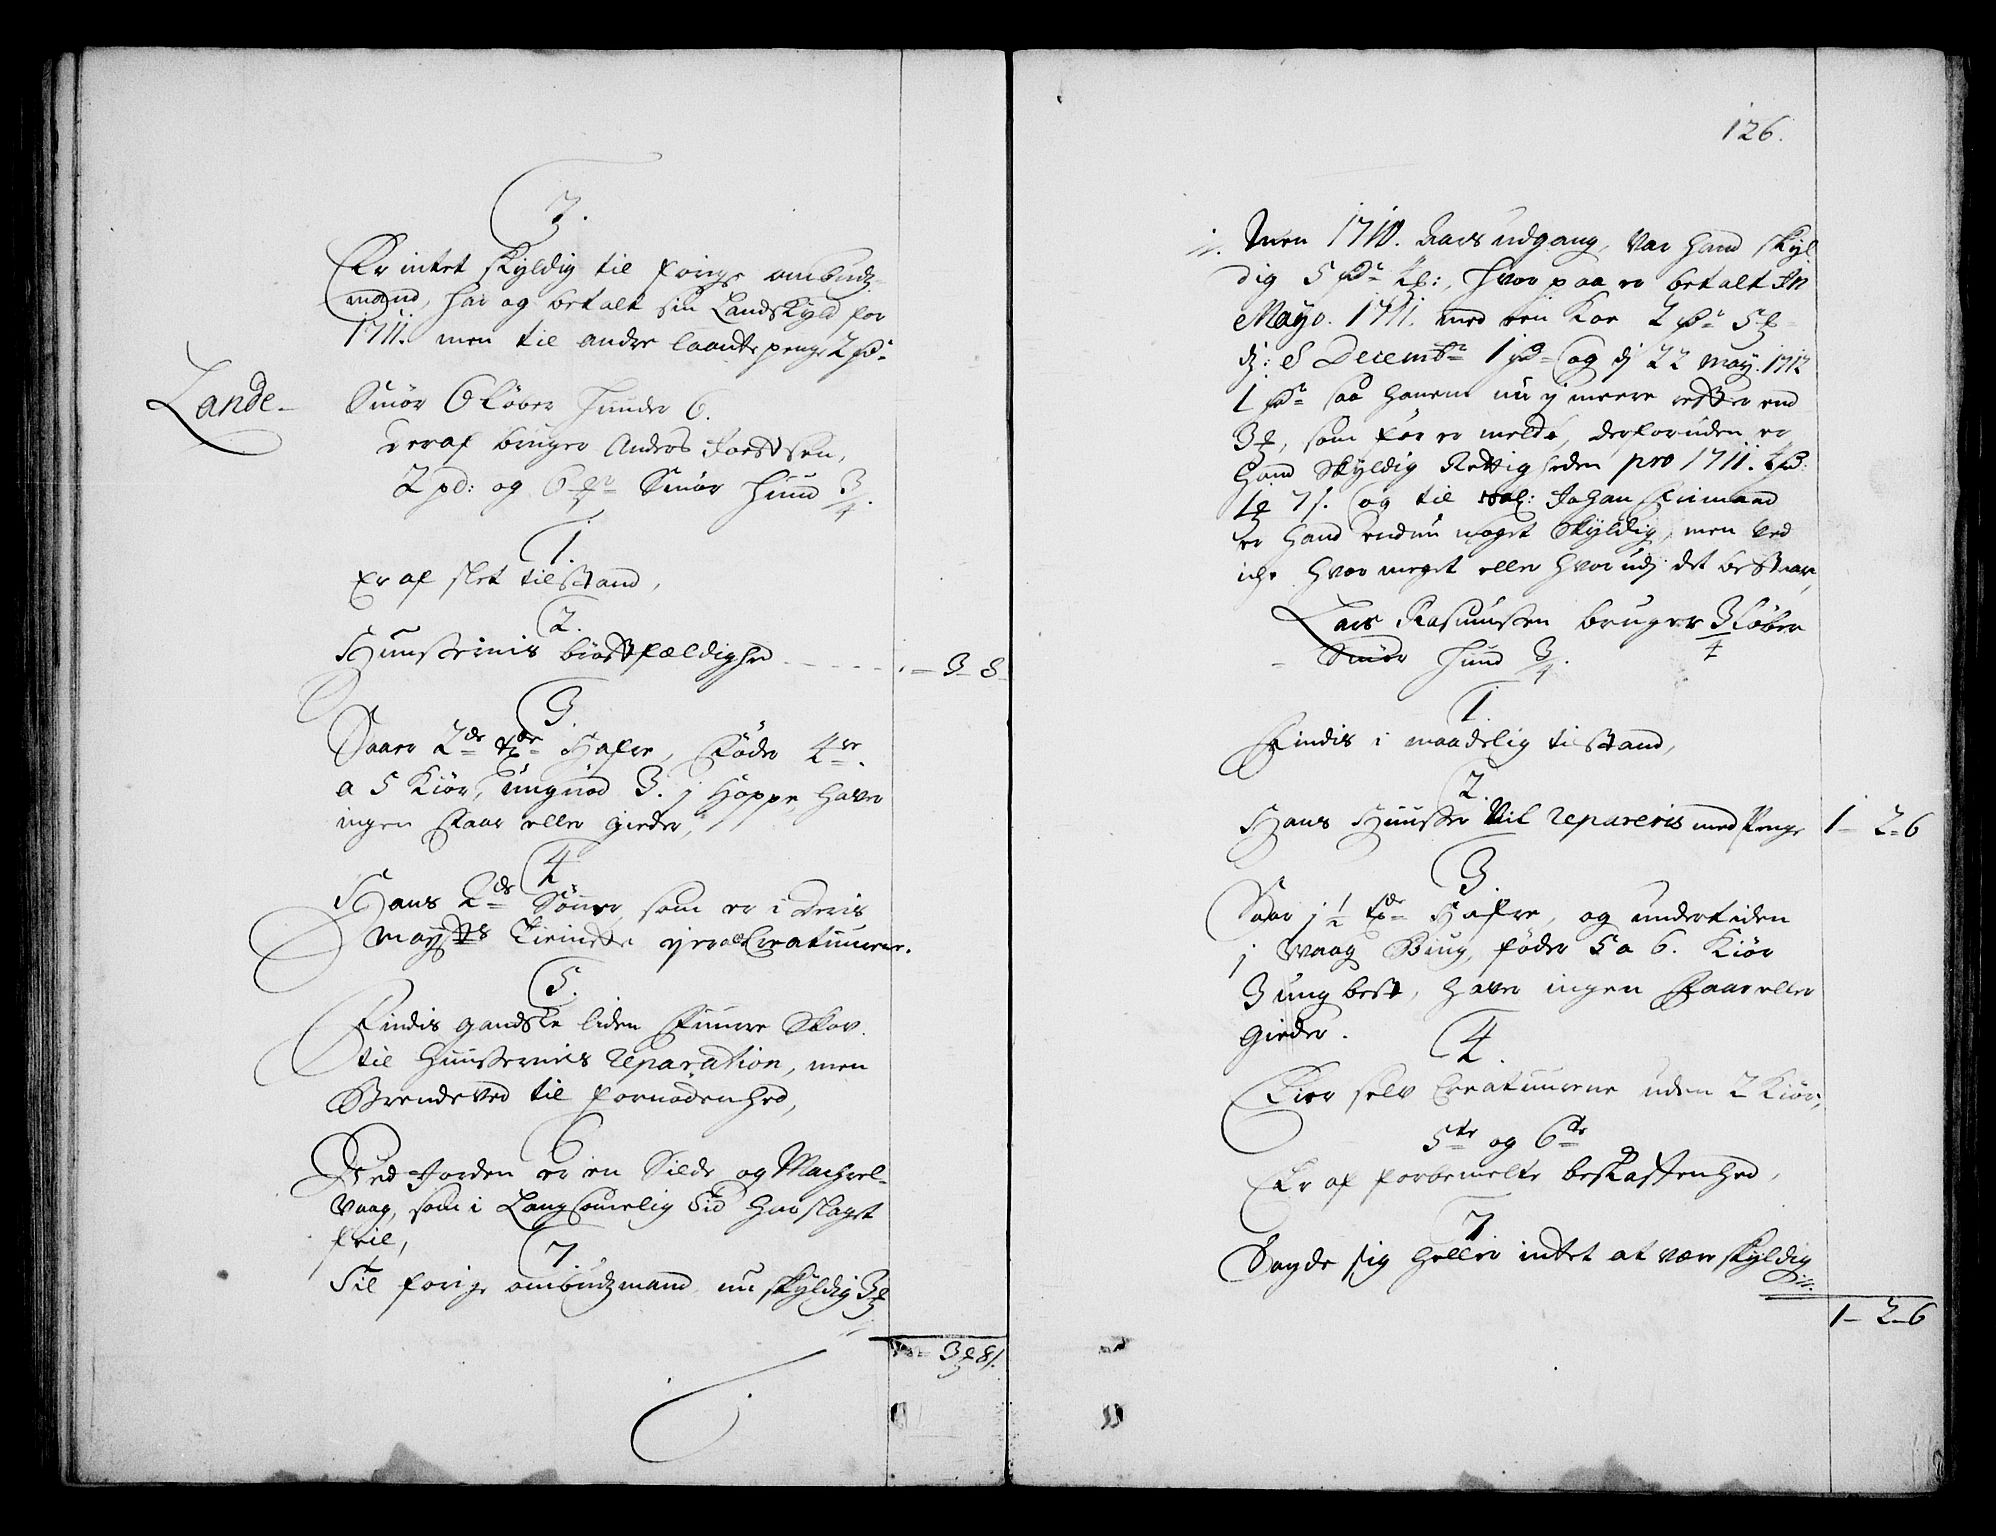 7.
Er intet skyldig til forige ombudz
mand, har og betalt sin Landskyld for
1711. men til andre laante penge 2 rdr
Lande
Smør 6 Løber Huuder 6.
Deraf bruger Anders Joensen,
2 pd: og 6 Smør Huud 3/4.
1.
Er af slet tilstand,
2.
Huussernis bröstfældighed - 3 - 8
3.
Saaer 2de tdr Hafre, föder 4re
a 5 Kiör, ungnöd 3. j Hoppe, haver
ingen Faar eller gieder,
4
Hans 2de Sönner, som er i Deris
Mayts Tieniste eyer Creatuurene.
5.
Findis gandske liden Fuure Skov
til Huussernis reparation, men
Brendeved til fornödenhed,
6
Ved Jorden er en Silde og Machrel-
Vaag, som i Langsommelig Tid har slaget
feil,
7.
Til forige ombudzmand nu skyldig 3
3 8 s.
126.
Inen 1710. Aars udgang, var hand skyl
dig 5 rdr, hvorpaa er betalt In
Mayo. 1711. med een Koe 2 rdr 5
d: 8 Decembr 1 rd og dj 22 May. 1712
1 rdr saa hanem nu ej meere rester end
3, som för er meldt, derforuden er
hand skyldig Rettigheden pro 1711.
1 7 s. og til Sal: Johan
er hand endnu noget skyldig, men ved
iche hvor meget eller hvorudj det bestaar,
Lars Rasmussen bruger 3 Löber
Smör Huud 3/4.
1.
Findis i maadelig tilstand,
2.
Hans Huusser Vil repareris med Penge 1 - 2 - 6
3.
Saar j 1/2 tde Hafre, og undertiden
j Vaag Biug, föder 5 a 6. Kiör
3 ungbest, haver ingen Faar eller
gieder.
4.
Eier selv Creatuurene uden 2 Kiör,
5te og 6te
Er af forbemelte beskaffenhed,
7.
Sagde sig heller intet at være skyldig
1 - 2 - 6